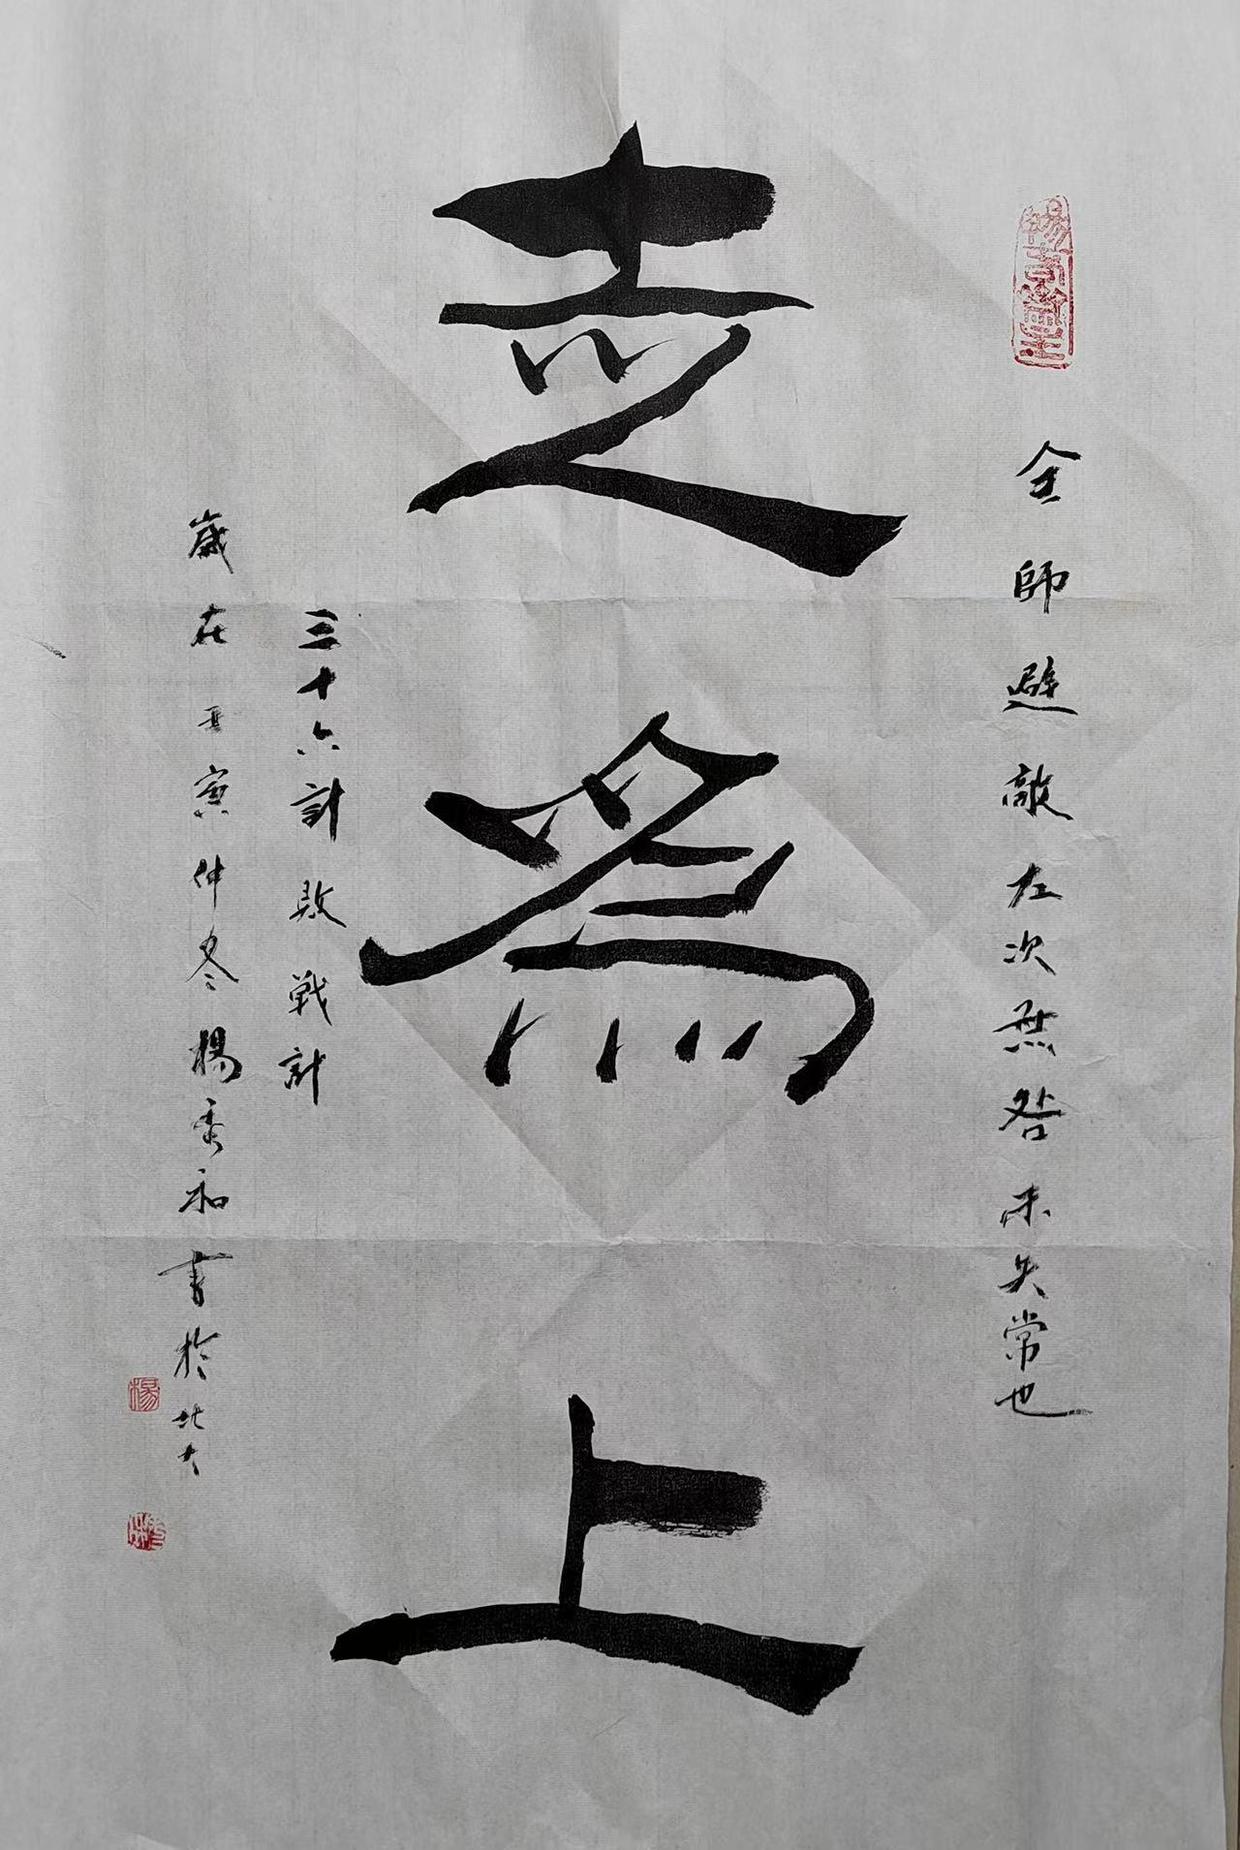 全師避敵左次無咎未失常也
走為上
三十六計敗戰計
歲在寅仲冬楊秀和書於北大
楊